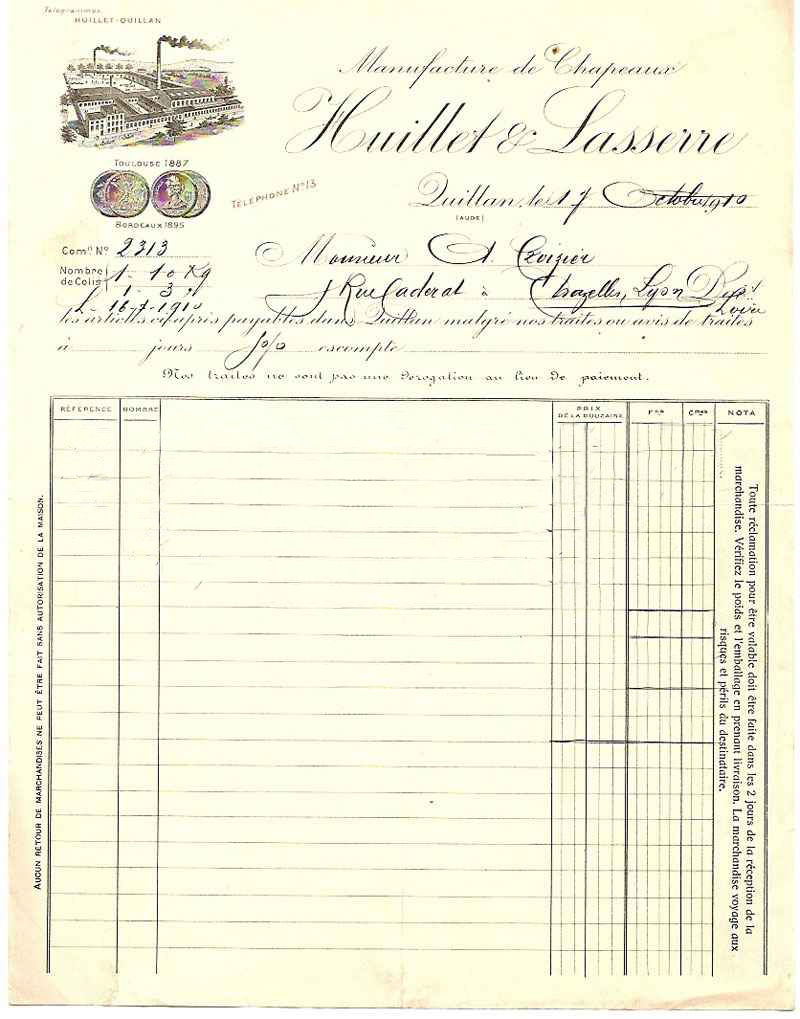 Télégrammes
HUILLET-QUILLAN
Manufacture de Chapeaux
Huillet & Lasserre
TOULOUSE 1887
BORDEAUX 1895
TÉLÉPHONE N° 13
Quillan, le 17 Octobre 1910
(AUDE)
Comon N° 2313
Monsieur A.
Nombre de Colis
1 - 10 Kg
1 - 3 "
Rue à Chazelles, Lyon
Loire
L - 16-7-1910
les articles ci-après payables dans Quillan malgré nos traites ou avis de traites
à jours % escompte
Nos traites ne sont pas une dérogation au lieu de paiement.
RÉFÉRENCE
NOMBRE
PRIX
DE LA DOUZAINE
Frcs
Cmes
NOTA
Toute réclamation pour être valable doit être faite dans les 2 jours de la réception de la
marchandise. Vérifiez le poids et l'emballage en prenant livraison. La marchandise voyage aux
risques et périls du destinataire.
AUCUN RETOUR DE MARCHANDISES NE PEUT ÊTRE FAIT SANS AUTORISATION DE LA MAISON.